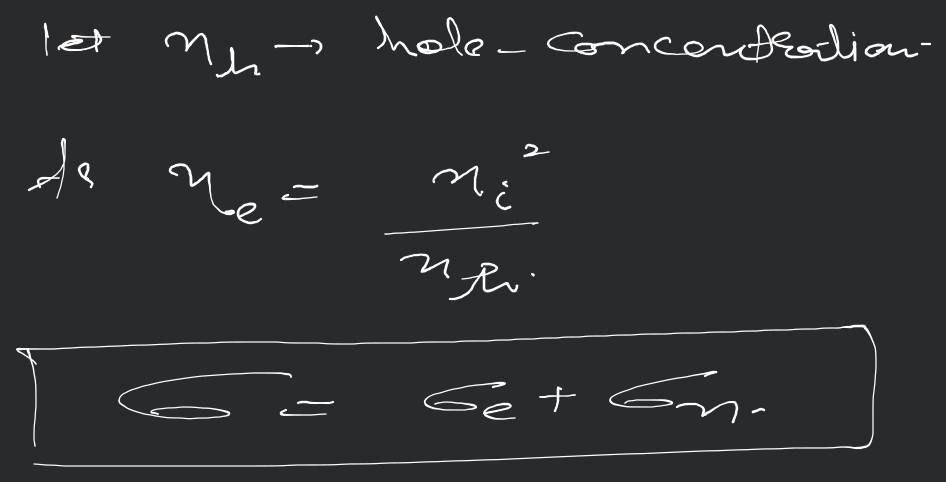 let n_h → hole-concentration-
As n_e = n_i^2 / n_h.
σ = σ_e + σ_n.